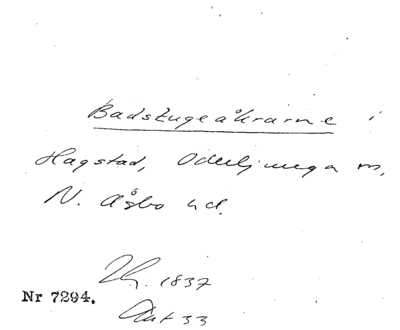 Badstugeåkrarne i
Hagstad, Oderljunga sn,
N. Åsbo hd.
1837
Nr 7294.
Akt 33